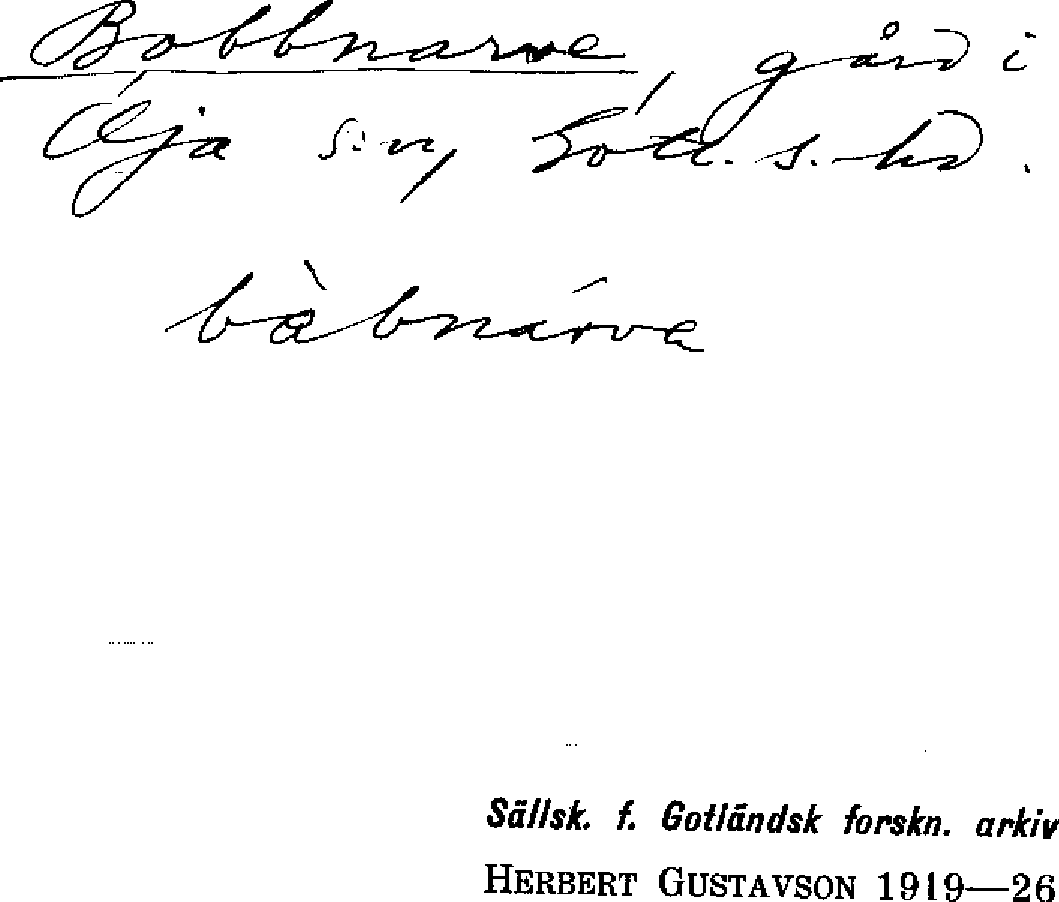 Bobbnarve, gård i
Öja s:n, Gotl. s. hd.
bàbnárva
Sällsk. f. Gotländsk forskn. arkiv
HERBERT GUSTAVSON 1919—26